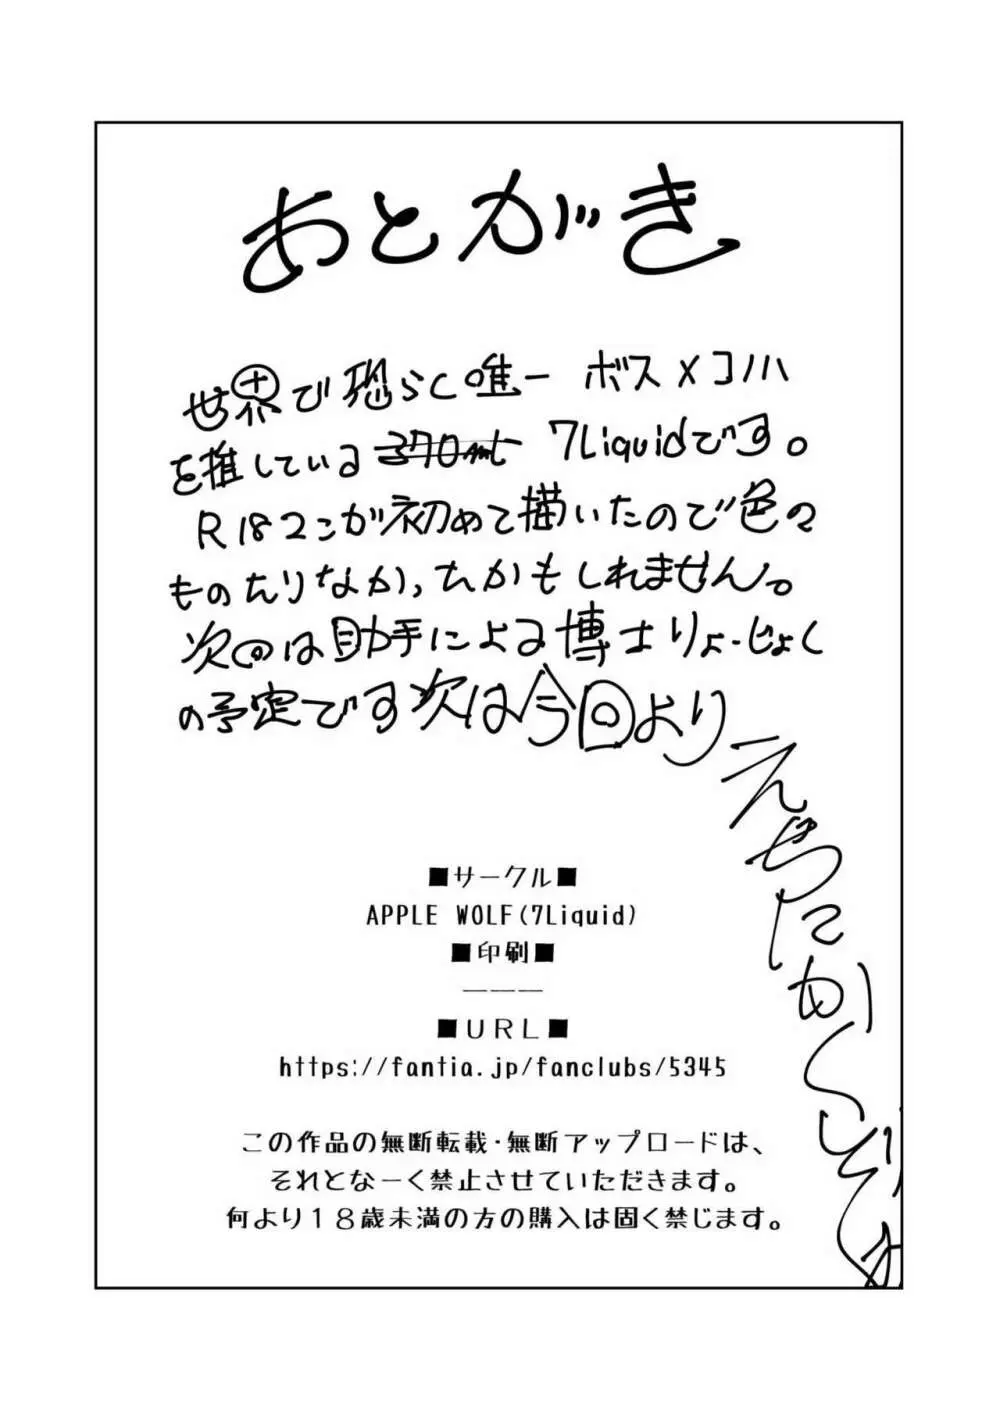 あとがき
世界で恐らく唯一 ボス×コノハ
を推している 370ml 7Liquidです。
R18マンガ初めて描いたので色々
ものたりなかったかもしれません。
次回は助手による博士りょーじょく
の予定です次は今回より
えちちにかくぞ
■サークル■
APPLE WOLF(7Liquid)
■印刷■
ーーー
■URL■
https://fantia.jp/fanclubs/5345
この作品の無断転載・無断アップロードは、
それとなーく禁止させていただきます。
何より18歳未満の方の購入は固く禁じます。